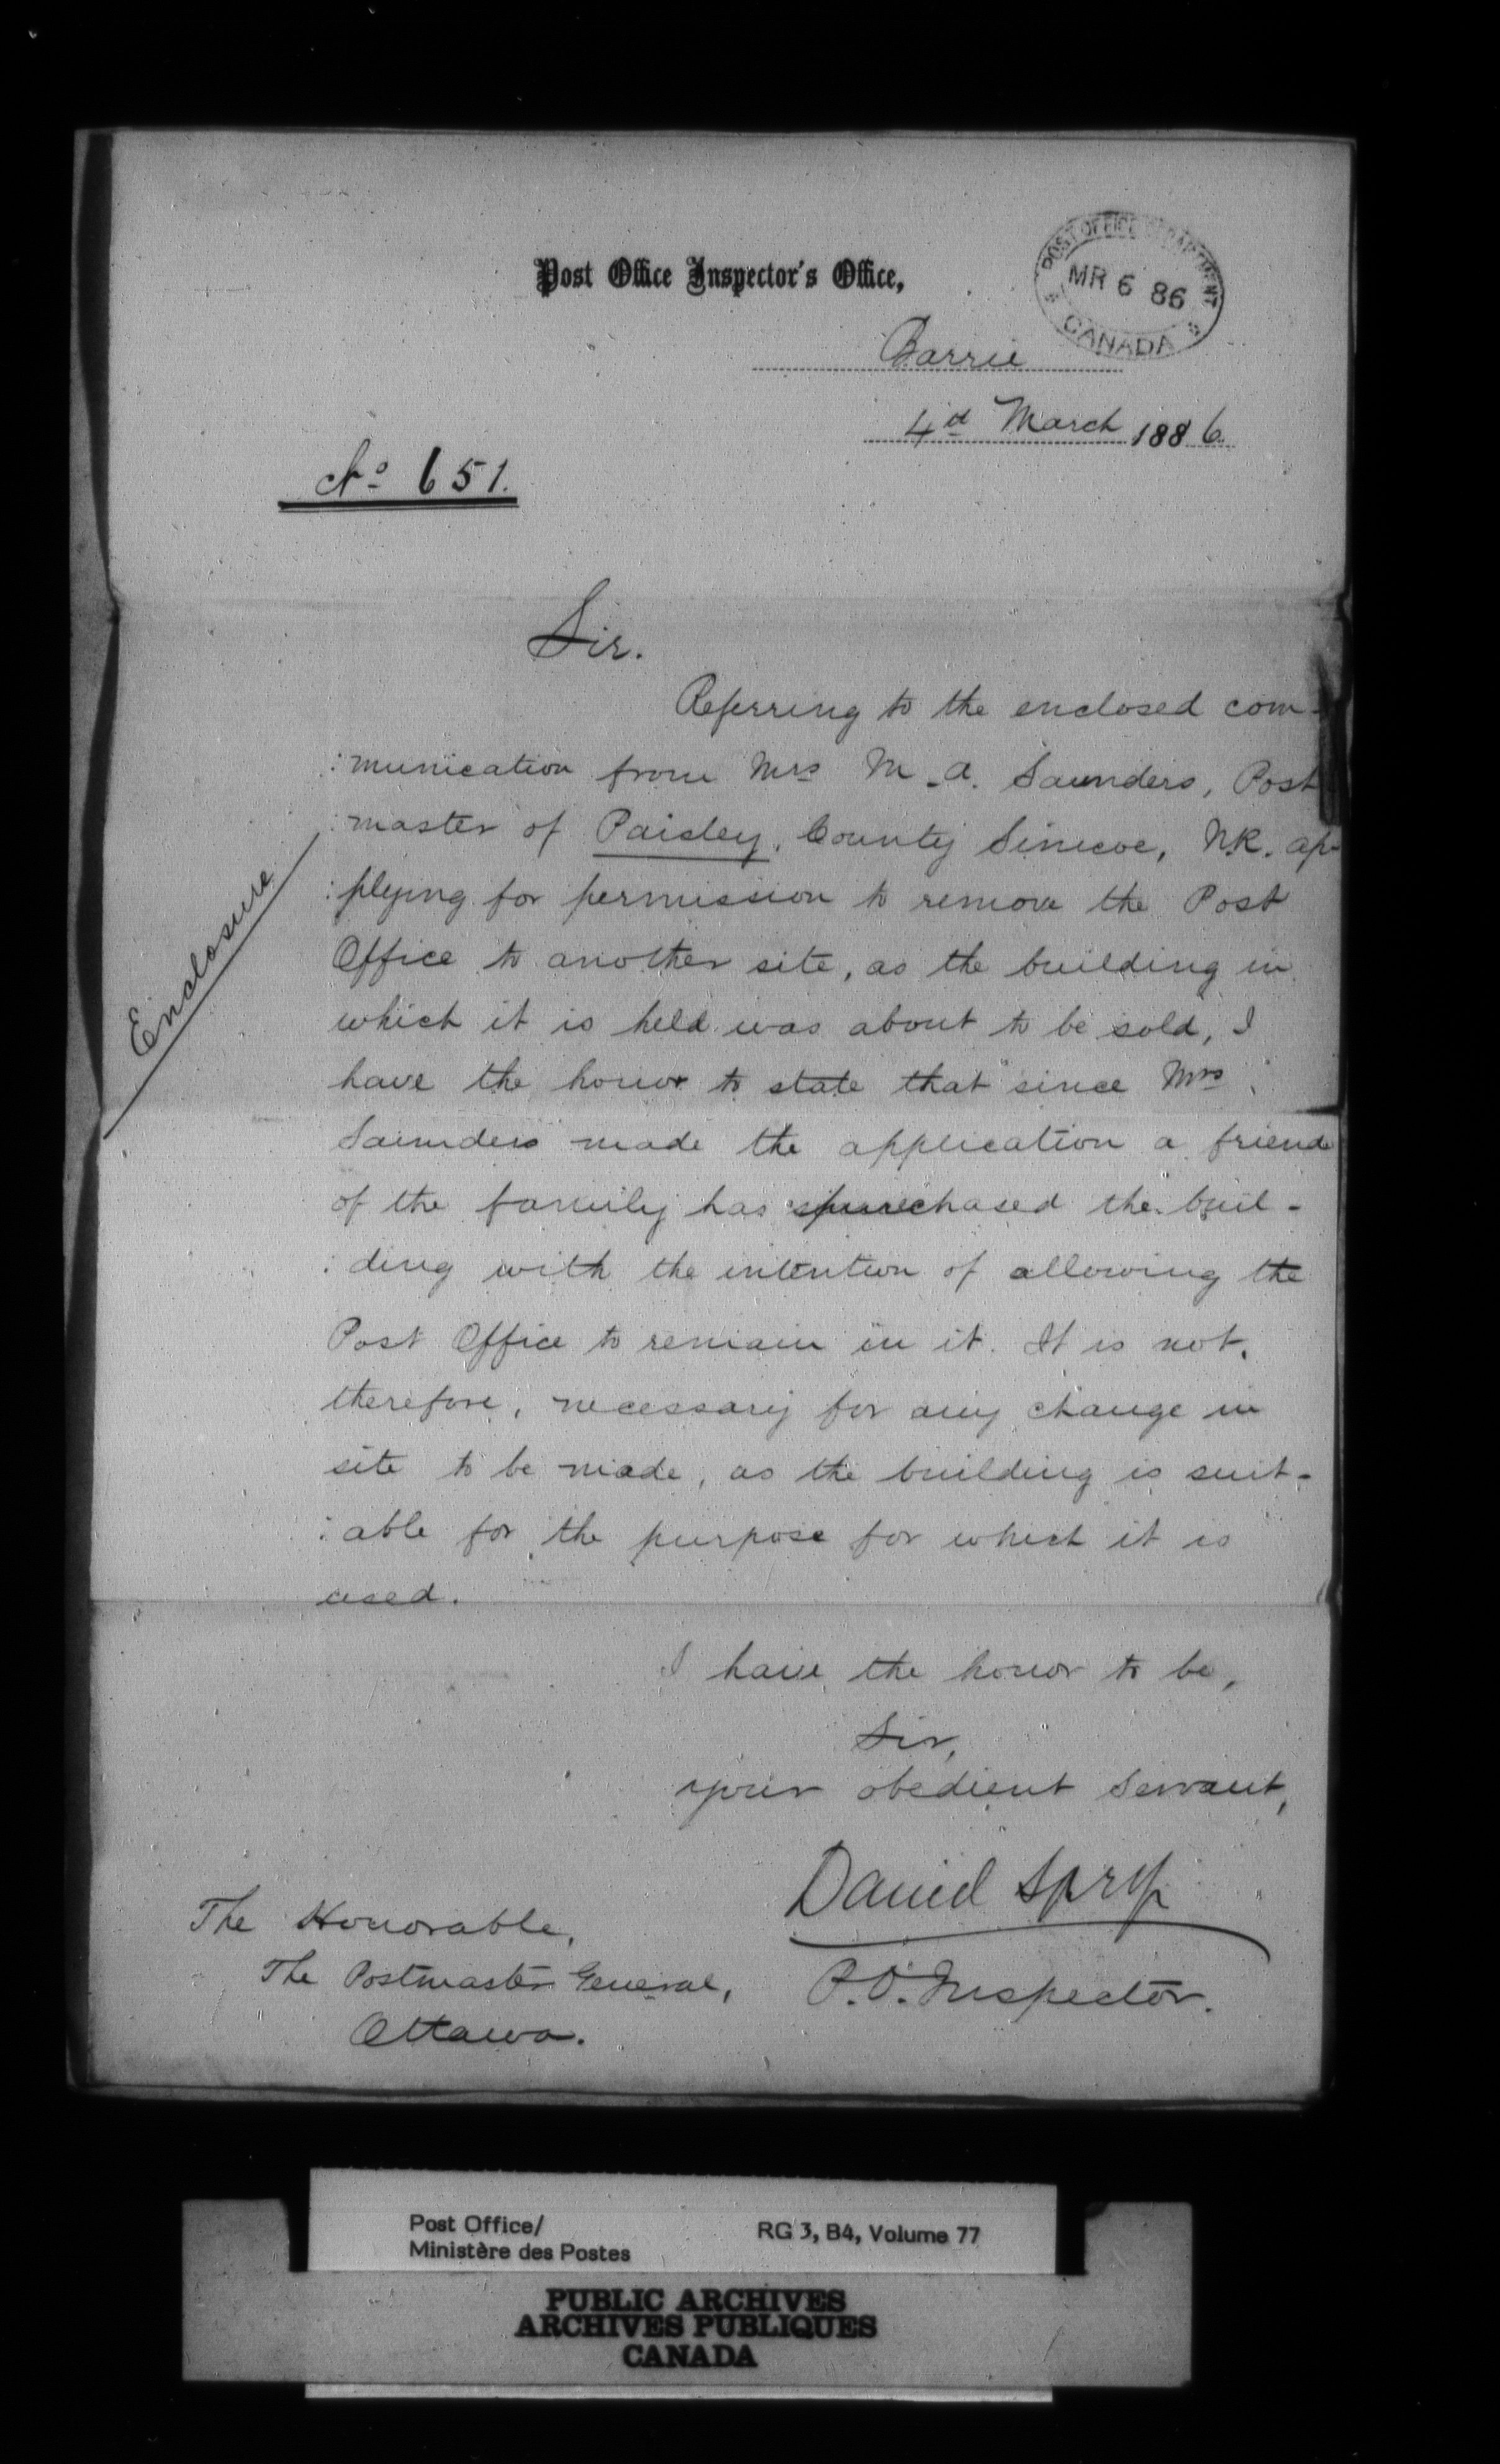 Post Office Inspector's Office,
POST OFFICE DEPARTMENT
MR 6 86
CANADA
Barrie
4d March 1886
No 651.
Sir.
Referring to the enclosed com-
:munication from Mrs M. A. Saunders, Post
:master of Paisley, County Simcoe, N.R. ap-
:plying for permission to remove the Post
Office to another site, as the building in
which it is held was about to be sold, I
have the honor to state that since Mrs
Saunders made the application a friend
of the family has purchased the buil-
:ding with the intention of allowing the
Post Office to remain in it. It is not,
therefore, necessary for any change in
site to be made, as the building is suit-
:able for the purpose for which it is
used.
Enclosure
I have the honor to be,
Sir,
your obedient servant,
Daniel Spry
P.O. Inspector.
The Honorable,
The Postmaster General,
Ottawa.
Post Office/
Ministère des Postes
RG 3, B4, Volume 77
PUBLIC ARCHIVES
ARCHIVES PUBLIQUES
CANADA